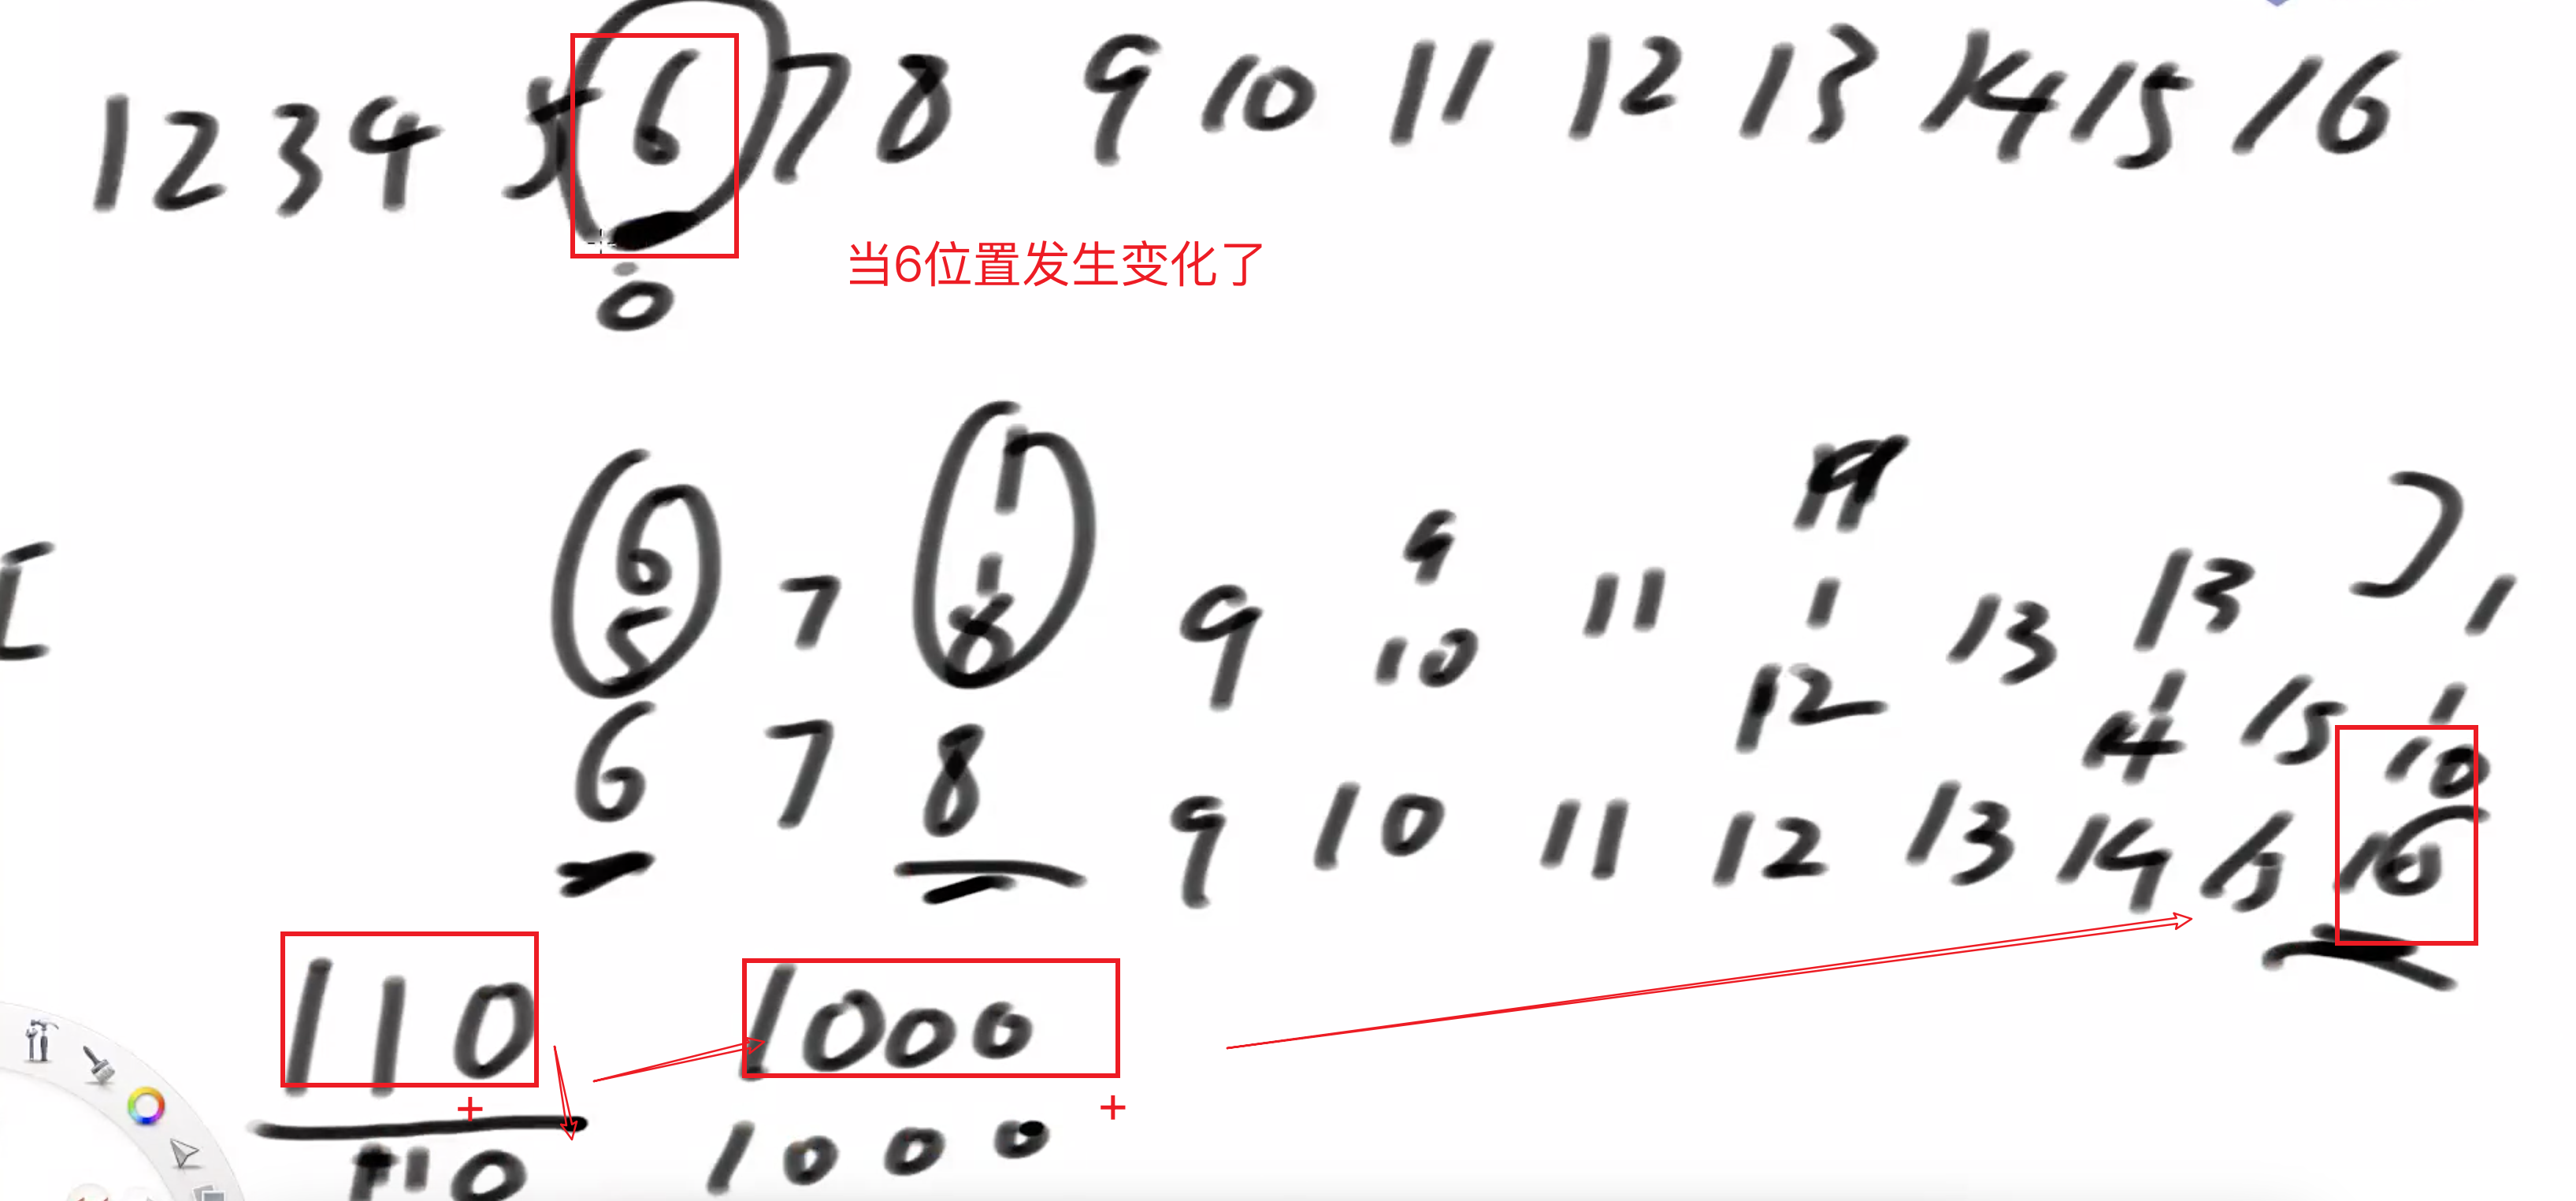 1 2 3 4 5 6 7 8 9 10 11 12 13 14 15 16
当6位置发生变化了
0
1 9
6 9 13
5 7 8 9 10 11 12 13 4 15 10
6 7 8 9 10 11 12 13 14 15 16
110 1000
+ +
110 1000